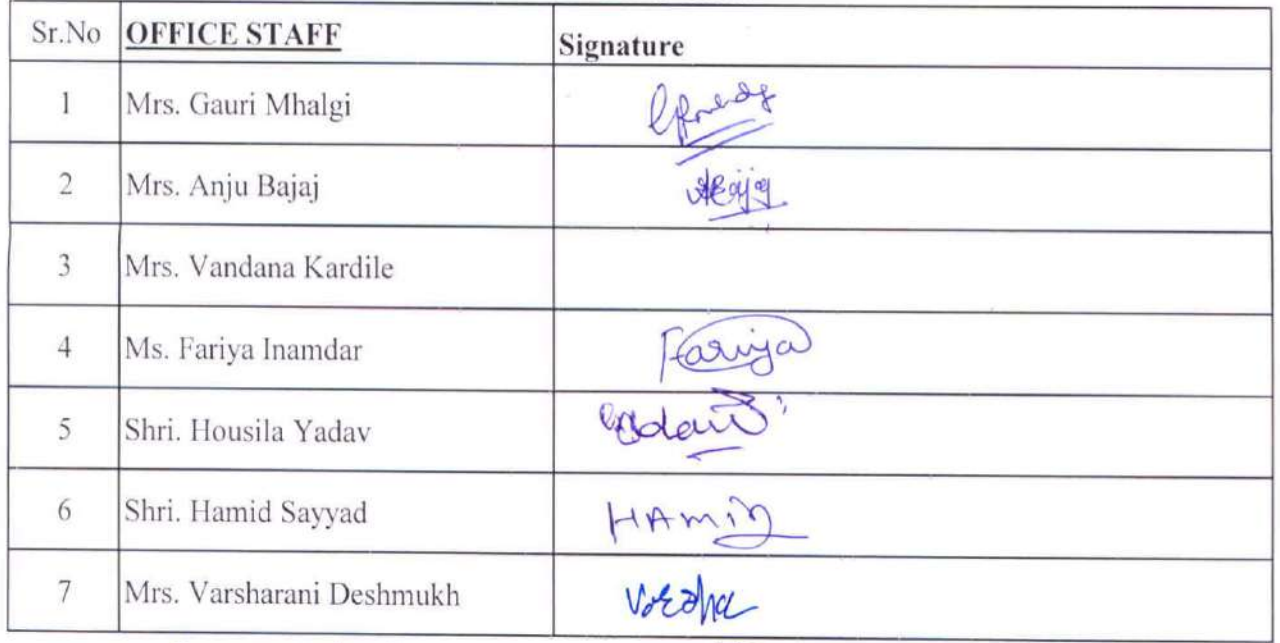 Sr.No OFFICE STAFF Signature
1 Mrs. Gauri Mhalgi
2 Mrs. Anju Bajaj
3 Mrs. Vandana Kardile
4 Ms. Fariya Inamdar Fariya
5 Shri. Housila Yadav
6 Shri. Hamid Sayyad HAMID
7 Mrs. Varsharani Deshmukh